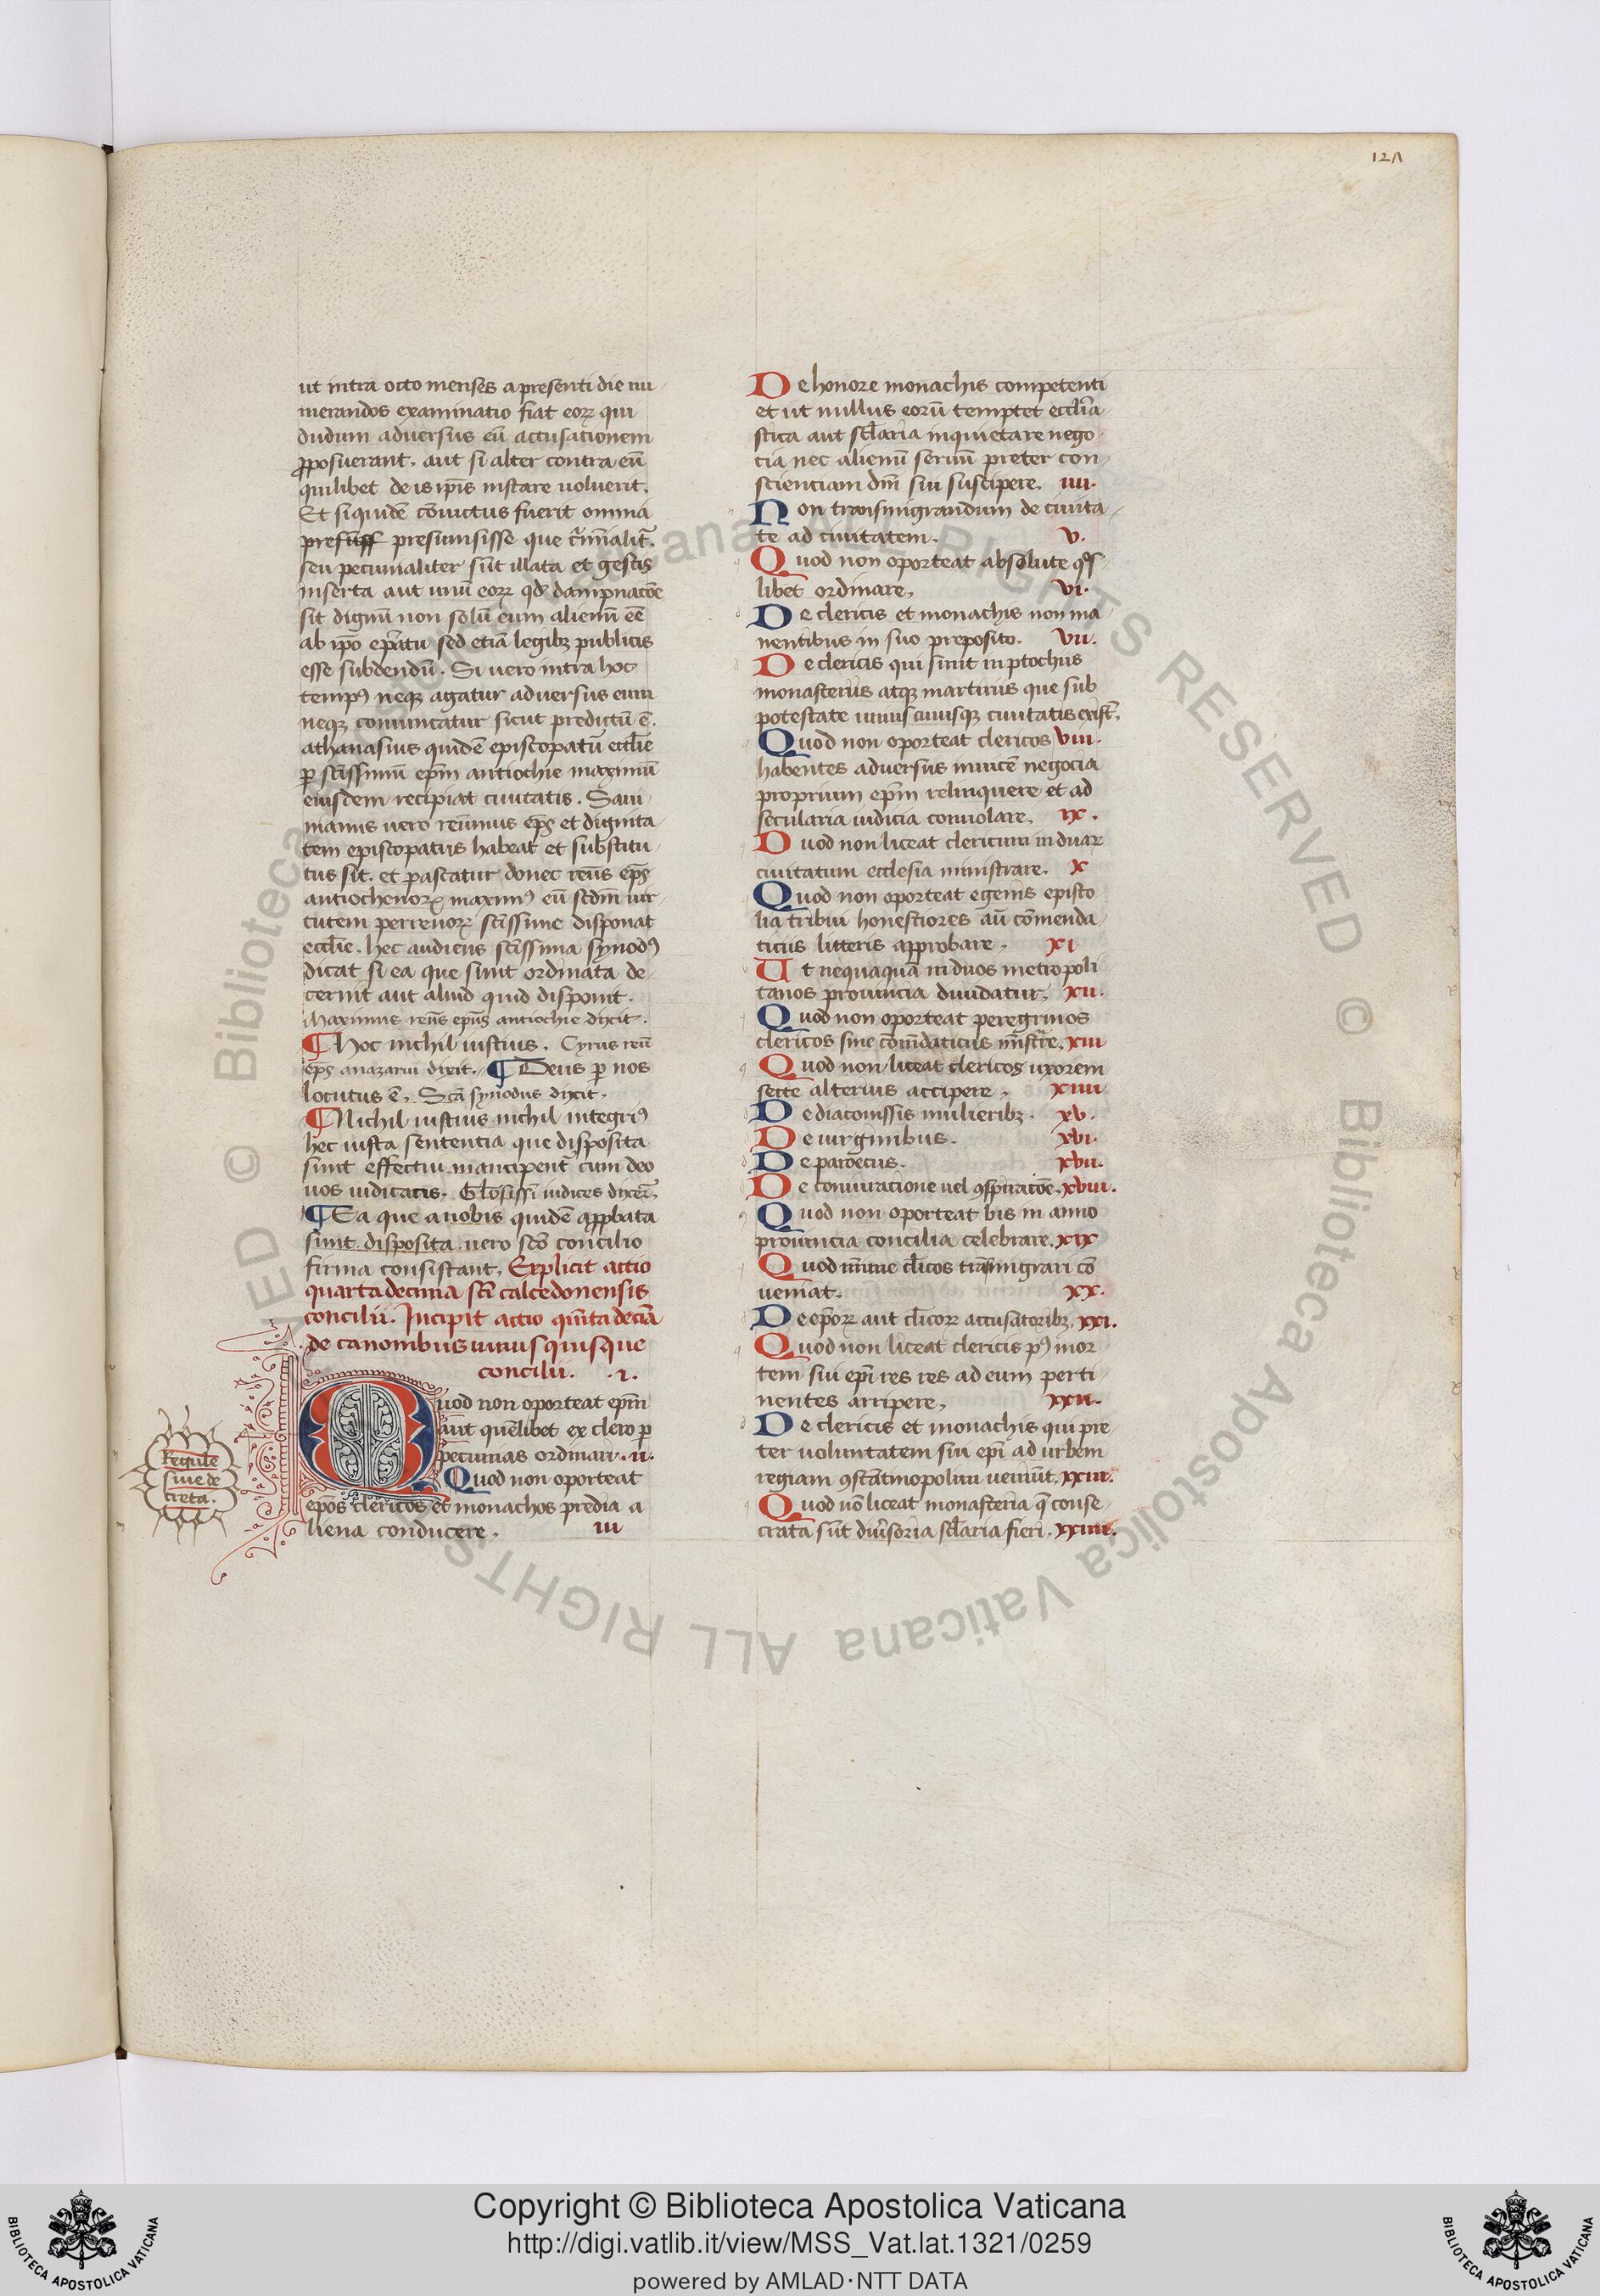 12Λ
ut intra octo menses a presenti die nu
merandos examinatio fiat eoꝝ qui
dudum aduersus eū accusationem
ꝓposuerant. aut si alter contra eū
quilibet de is ip̄is instare uoluerit.
Et siquidē cōuictus fuerit omnia
presumpsisse que c̄mīnalit̄.
seu pecunialiter sūt illata et gestis
inserta aut unū eoꝝ qd̄ dampnacōe
sit dignū non solū eum alienū eē
ab ip̄o ep̄atu sed etiā legibꝫ publicis
esse subdendū. Si uero intra hoc
tempꝰ neqꝫ agatur aduersus eum
neqꝫ conuincatur sicut predictū ē.
athanasius quidē episcopatū eccl̄ie
ꝑ sc̄issimū ep̄m antiochie maximū
eiusdem recipiat ciuitatis. Saui
nianus uero reū̄mus ep̄s et dignita
tem episcopatus habeat et substitu
tus sit. et pascatur donec reūs ep̄s
antiochenoꝝ maximꝰ eū scd̄m uir
tutem peruenoꝝ sc̄issime disponat
eccl̄ie. hec audiens sc̄issima synodꝰ
dicat si ea que sunt ordinata de
cernit aut aliud quid disponit.
Maximus reūs ep̄us antiochie dixit.
¶ hoc nichil iustius. Cyrus reū
ep̄s anazarui dixit. ¶ Deus ꝑ nos
locutus ē. Sc̄a synodus dixit.
¶ Nichil iustius nichil integriꝰ
hec iusta sententia que disposita
sunt effectui mancipent̄ cum deo
uos iudicatis. Gl̄osissi iudices dixer̄.
¶ Ea que a nobis quidē aꝓbata
sunt. disposita uero sc̄o concilio
firma consistant. Explicit actio
quartadecima sc̄i calcedonensis
concilii. Incipit actio quīta deciā
de canonibus uniuscuiusque
concilii. .i.
Quod non oporteat ep̄m
aut quēlibet ex clero ꝑ
pecunias ordinari .ii.
Quod non oporteat
ep̄os clericos et monachos predia a
liena conducere. iii
Regule
siue de
creta.
De honore monachis competenti
et ut nullus eorū temptet eccl̄ia
stica aut sc̄laria inquietare nego
cia nec alienū seruū preter con
scientiam dn̄i sui suscipere. iiii.
Non transmigrandum de ciuita
te ad ciuitatem. v.
Quod non oporteat absolute qͣs
libet ordinare. vi.
De clericis et monachis non ma
nentibus in suo preposito. vii.
De clericis qui sunt in ptochiis
monasteriis atqꝫ martiriis que sub
potestate uniuscuiusqꝫ ciuitatis exist̄.
Quod non oporteat clericos viii.
habentes aduersus inuicē negocia
proprium ep̄m relinquere et ad
secularia iudicia conuolare. ix.
Quod non liceat clericum in duaꝝ
ciuitatum ecclesia ministrare. x
Quod non oporteat egenis episto
lia tribui honestiores aū cōmenda
ticiis litteris approbare. xi
Ut nequaquā in duos metropoli
tanos prouincia diuidatur. xii.
Quod non oporteat peregrinos
clericos sine cōmēdaticiis mīstrare. xiii
Quod non liceat clericos uxorem
secte alterius accipere. xiiii
De diaconissis mulieribꝫ. xv.
De uirginibus. xvi.
De paroeciis. xvii.
De coniuratione uel ꝯspiracōe. xviii.
Quod non oporteat bis in anno
prouincia concilia celebrare. xix
Quod minime cl̄icos transmigrari cō
ueniat. xx.
De ep̄oꝝ aut cl̄icoꝝ accusatoribꝫ. xxi.
Quod non liceat clericis pꝰ mor
tem sui ep̄i res res ad eum perti
nentes arripere. xxii.
De clericis et monachis qui pre
ter uoluntatem sui ep̄i ad urbem
regiam ꝯstātinopolim ueniūt. xxiii.
Quod nō liceat monasteria q̄ conse
crata sūt diu̓soria sc̄laria fieri. xxiiii.
© Biblioteca Apostolica Vaticana ALL RIGHTS RESERVED © Biblioteca Apostolica Vaticana ALL RIGHTS RESERVED
Copyright © Biblioteca Apostolica Vaticana
http://digi.vatlib.it/view/MSS_Vat.lat.1321/0259
powered by AMLAD·NTT DATA
BIBLIOTECA APOSTOLICA VATICANA
BIBLIOTECA APOSTOLICA VATICANA